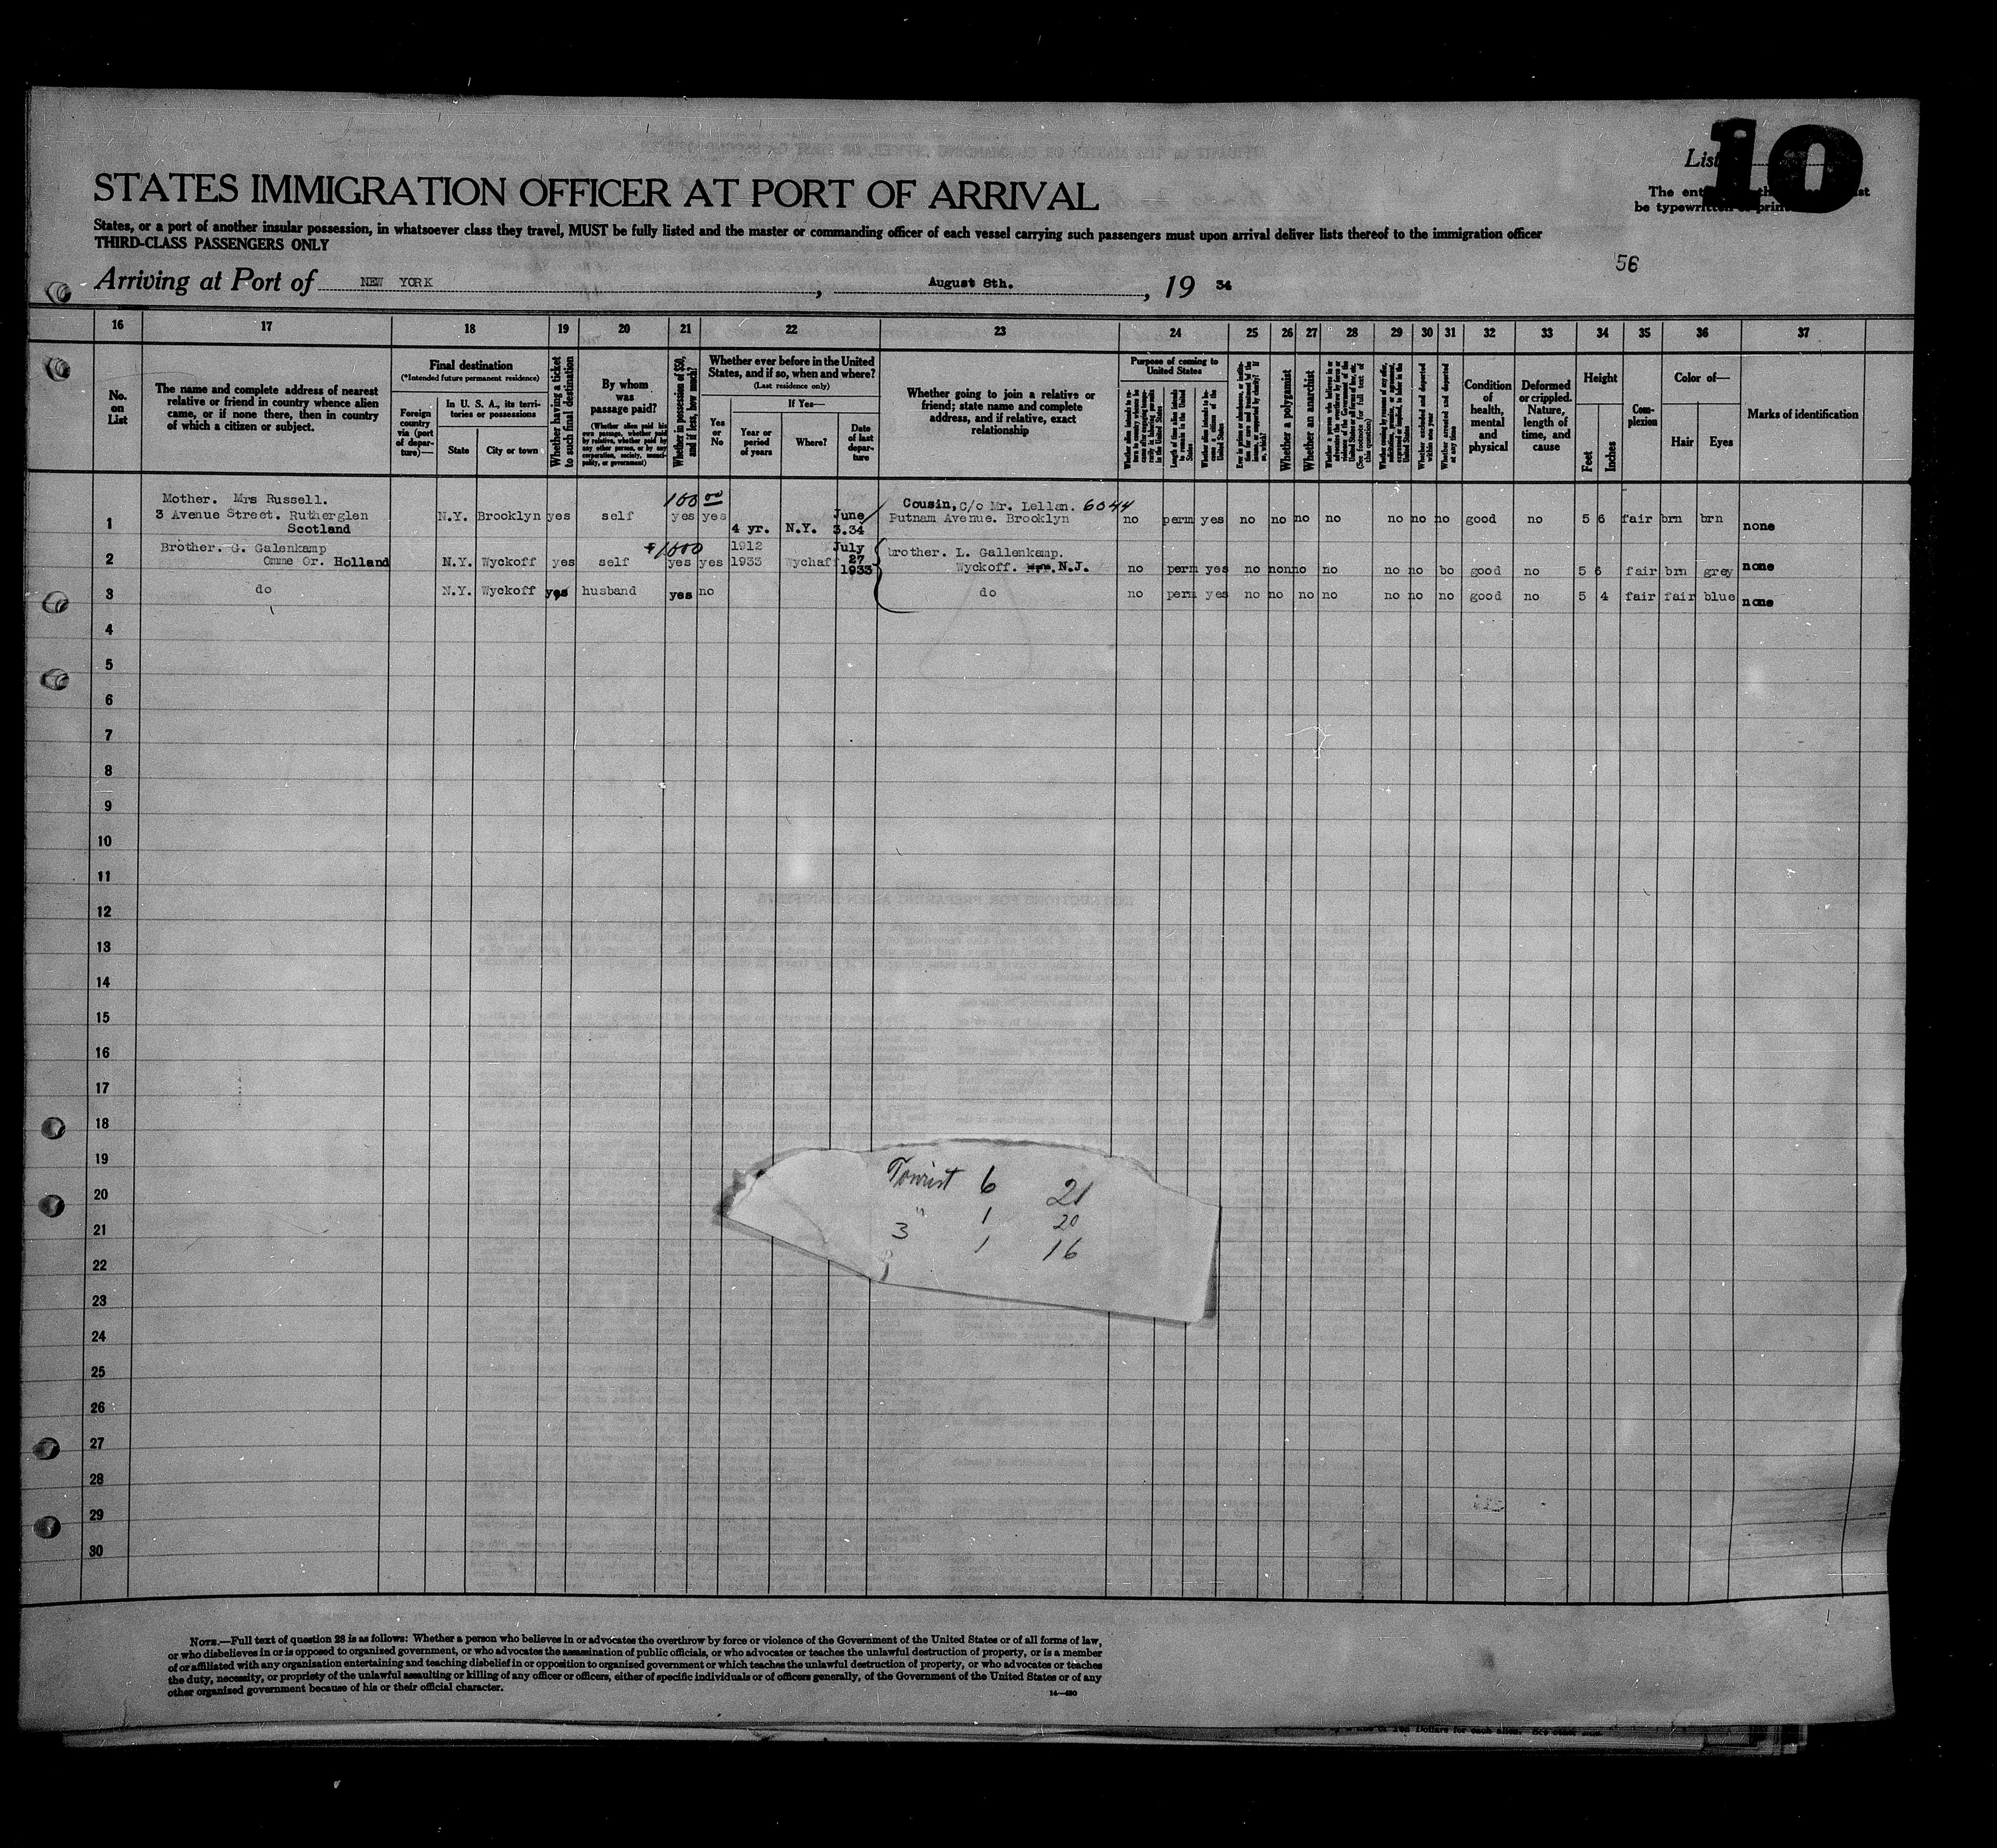 List 10
The ent
be typewritten or print
STATES IMMIGRATION OFFICER AT PORT OF ARRIVAL
States, or a port of another insular possession, in whatsoever class they travel, MUST be fully listed and the master or commanding officer of each vessel carrying such passengers must upon arrival deliver lists thereof to the immigration officer
THIRD-CLASS PASSENGERS ONLY
56
Arriving at Port of NEW YORK, August 8th., 19 34
16 17 18 19 20 21 22 23 24 25 26 27 28 29 30 31 32 33 34 35 36 37
No. on List
The name and complete address of nearest relative or friend in country whence alien came, or if none there, then in country of which a citizen or subject.
Final destination
(*Intended future permanent residence)
Foreign country via (port of departure)—
In U. S. A., its territories or possessions
State
City or town
Whether having a ticket to such final destination
By whom was passage paid?
(Whether alien paid his own passage, whether paid by relative, whether paid by any other person, or by any corporation, society, municipality, or government)
Whether in possession of $50, and if less, how much?
Whether ever before in the United States, and if so, when and where?
(Last residence only)
Yes or No
If Yes—
Year or period of years
Where?
Date of last departure
Whether going to join a relative or friend; state name and complete address, and if relative, exact relationship
Purpose of coming to United States
Length of time alien intends to remain in the United States
Whether alien intends to become a citizen of the United States
Whether a polygamist
Whether an anarchist
Whether excluded and deported within one year
Whether arrested and deported at any time
Condition of health, mental and physical
Deformed or crippled. Nature, length of time, and cause
Height
Feet
Inches
Complexion
Color of—
Hair
Eyes
Marks of identification
1 Mother. Mrs Russell.
3 Avenue Street. Rutherglen
Scotland
N.Y. Brooklyn yes self 100 00 yes yes 4 yr. N.Y. June 3.34 Cousin, c/o Mr. Lellan. 6044
Putnam Avenue. Brooklyn no perm yes no no no no no no no good no 5 6 fair brn brn none
2 Brother. G. Galenkamp
Omme Or. Holland N.Y. Wyckoff yes self $1500 yes yes 1912
1933 Wychaff July 27 1933 brother. L. Gallenkamp.
Wyckoff. N.J. no perm yes no non no no no no bo good no 5 6 fair brn grey none
3 do N.Y. Wyckoff yes husband yes no do no perm yes no no no no no no no good no 5 4 fair fair blue none
4
5
6
7
8
9
10
11
12
13
14
15
16
17
18
19
20
21
22
23
24
25
26
27
28
29
30
Tourist 6 21
" 1 20
3 1 16
NOTE.—Full text of question 28 is as follows: Whether a person who believes in or advocates the overthrow by force or violence of the Government of the United States or of all forms of law,
or who disbelieves in or is opposed to organized government, or who advocates the assassination of public officials, or who advocates or teaches the unlawful destruction of property, or is a member
of or affiliated with any organisation entertaining and teaching disbelief in or opposition to organized government or which teaches the unlawful destruction of property, or who advocates or teaches
the duty, necessity, or propriety of the unlawful assaulting or killing of any officer or officers, either of specific individuals or of officers generally, of the Government of the United States or of any
other organized government because of his or their official character.
14—430